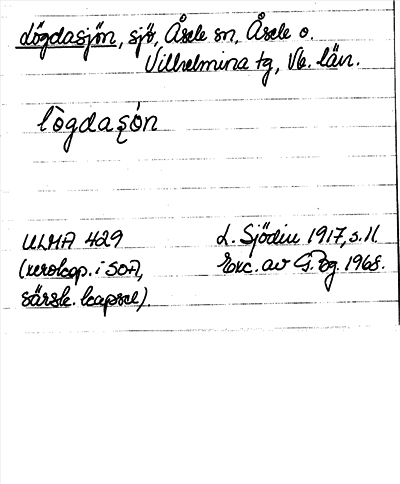 Lögdasjön, sjö, Åsele sn, Åsele o.
Vilhelmina tg, Vb. län.
lògdaʂón
ULMA 429
(xerokop. i SOA,
särsk. kapsel).
L. Sjödin 1917, s. 11.
Exc. av G. Pg. 1968.